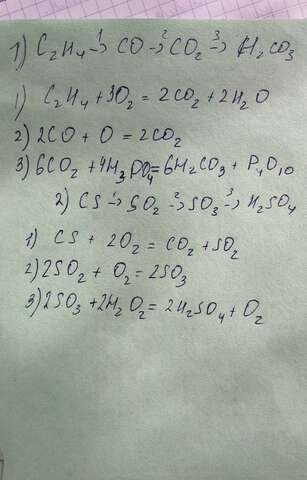 1) C₂H₄ →¹ CO →² CO₂ →³ H₂CO₃
1) C₂H₄ + 3O₂ = 2CO₂ + 2H₂O
2) 2CO + O = 2CO₂
3) 6CO₂ + 4H₃PO₄ = 6H₂CO₃ + P₄O₁₀
2) CS →¹ SO₂ →² SO₃ →³ H₂SO₄
1) CS + 2O₂ = CO₂ + SO₂
2) 2SO₂ + O₂ = 2SO₃
3) 2SO₃ + 2H₂O₂ = 2H₂SO₄ + O₂